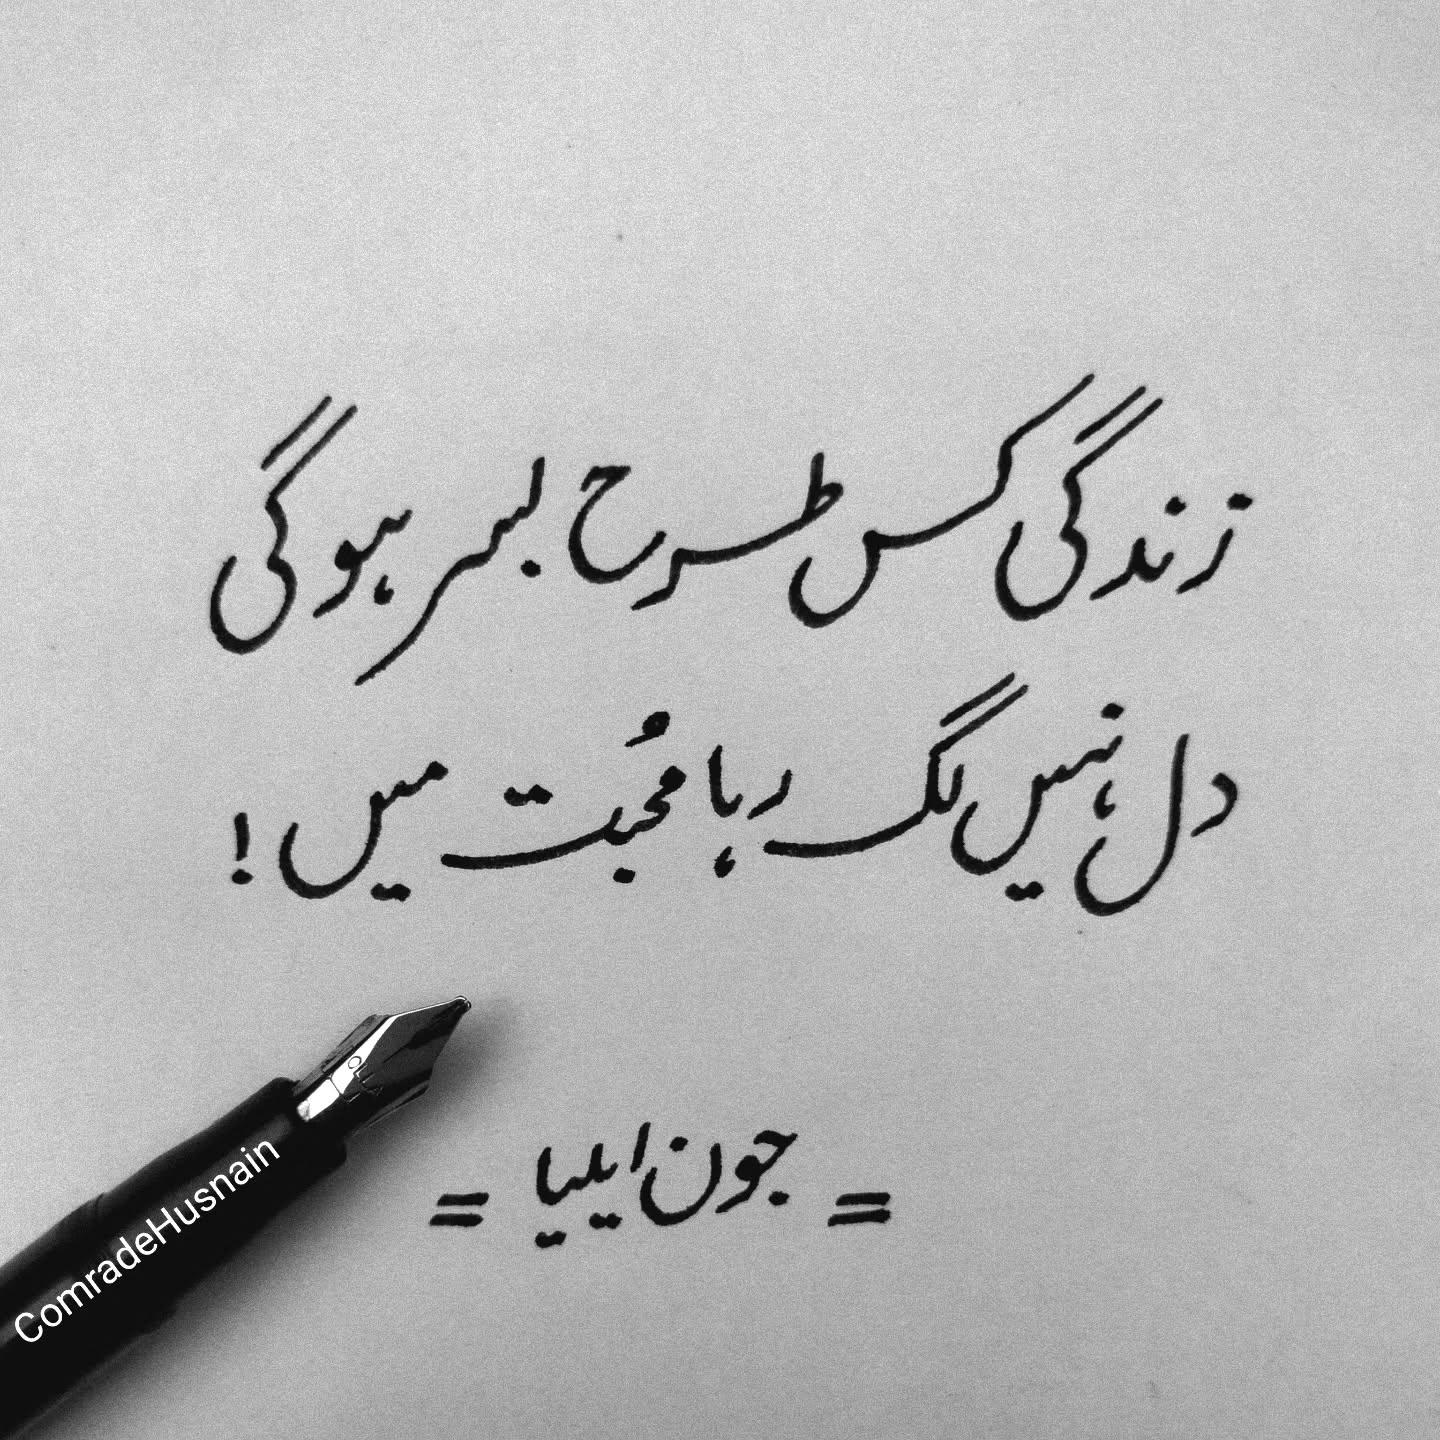 زندگی کس طرح بسر ہوگی
دل نہیں لگ رہا مُحبت میں !
= جون ایلیا =
ComradeHusnain